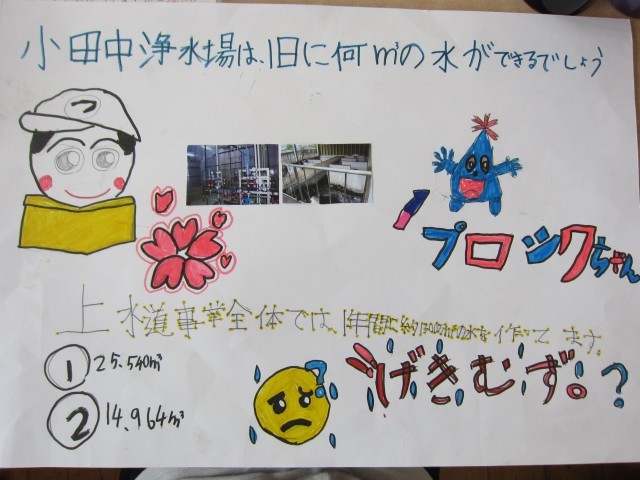 小田中浄水場は、1日に何㎥の水ができるでしょう
つ
ブロックちゃん
上水道事業全体では、1年間に約
の水を作ってます。
① 25.540㎥
② 14.964㎥
?
げきむず。?